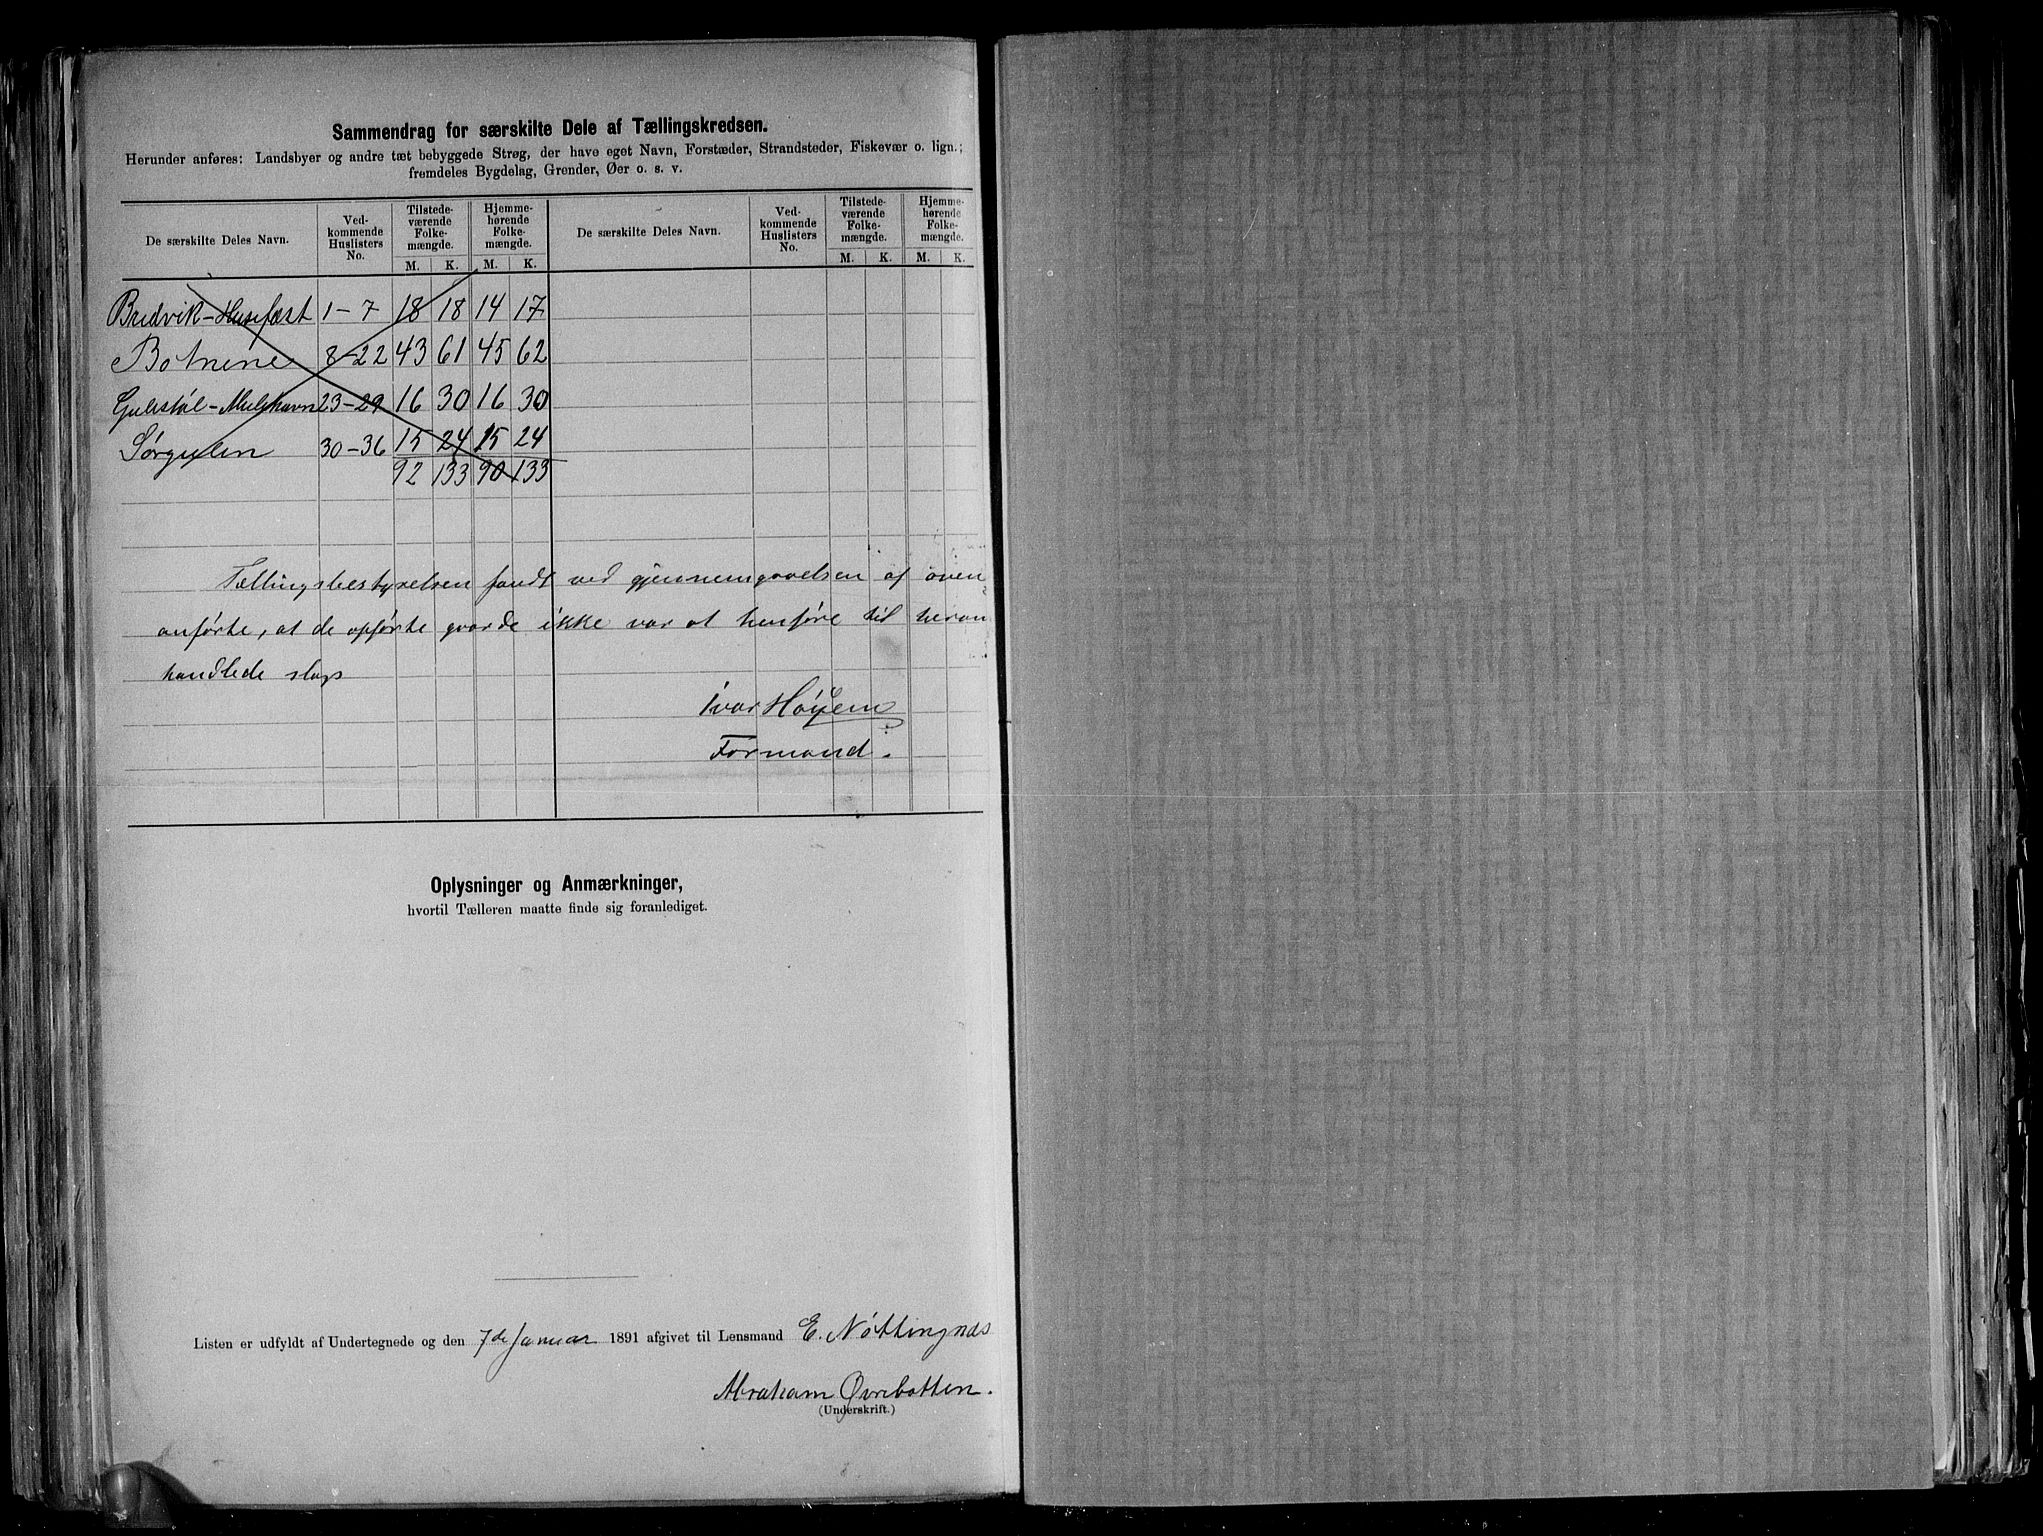 Sammendrag for særskilte Dele af Tællingskredsen.
Herunder anføres: Landsbyer og andre tæt bebyggede Strøg, der have eget Navn, Forstæder, Strandsteder, Fiskevær o. lign.;
fremdeles Bygdelag, Grender, Øer o. s. v.
De særskilte Deles Navn. Ved-kommende Huslisters No. Tilstede-værende Folke-mængde. Hjemme-hørende Folke-mængde. De særskilte Deles Navn. Ved-kommende Huslisters No. Tilstede-værende Folke-mængde. Hjemme-hørende Folke-mængde.
M. K. M. K. M. K. M. K.
Bredvik-Husefæst 1-7 18 18 14 17
Botnene 8-22 43 61 45 62
Gulestøl-Mulehavn 23-29 16 30 16 30
Sørgulen 30-36 15 24 15 24
92 133 90 133
Tællingsbestyrelsen fandt ved gjennemgaaelsen af oven
anførte, at de opførte gaarde ikke var at henføre til heron
handlede slags
Ivar Høyem
Formand.
Oplysninger og Anmærkninger,
hvortil Tælleren maatte finde sig foranlediget.
Listen er udfyldt af Undertegnede og den 7de Januar 1891 afgivet til Lensmand E. Nøttingnæs
Abraham Øvrebotten.
(Underskrift.)